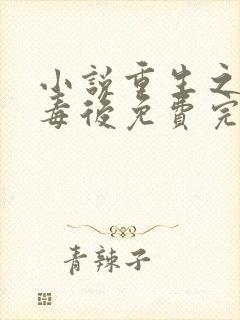 小説重生之
毒後免費完
青辣子